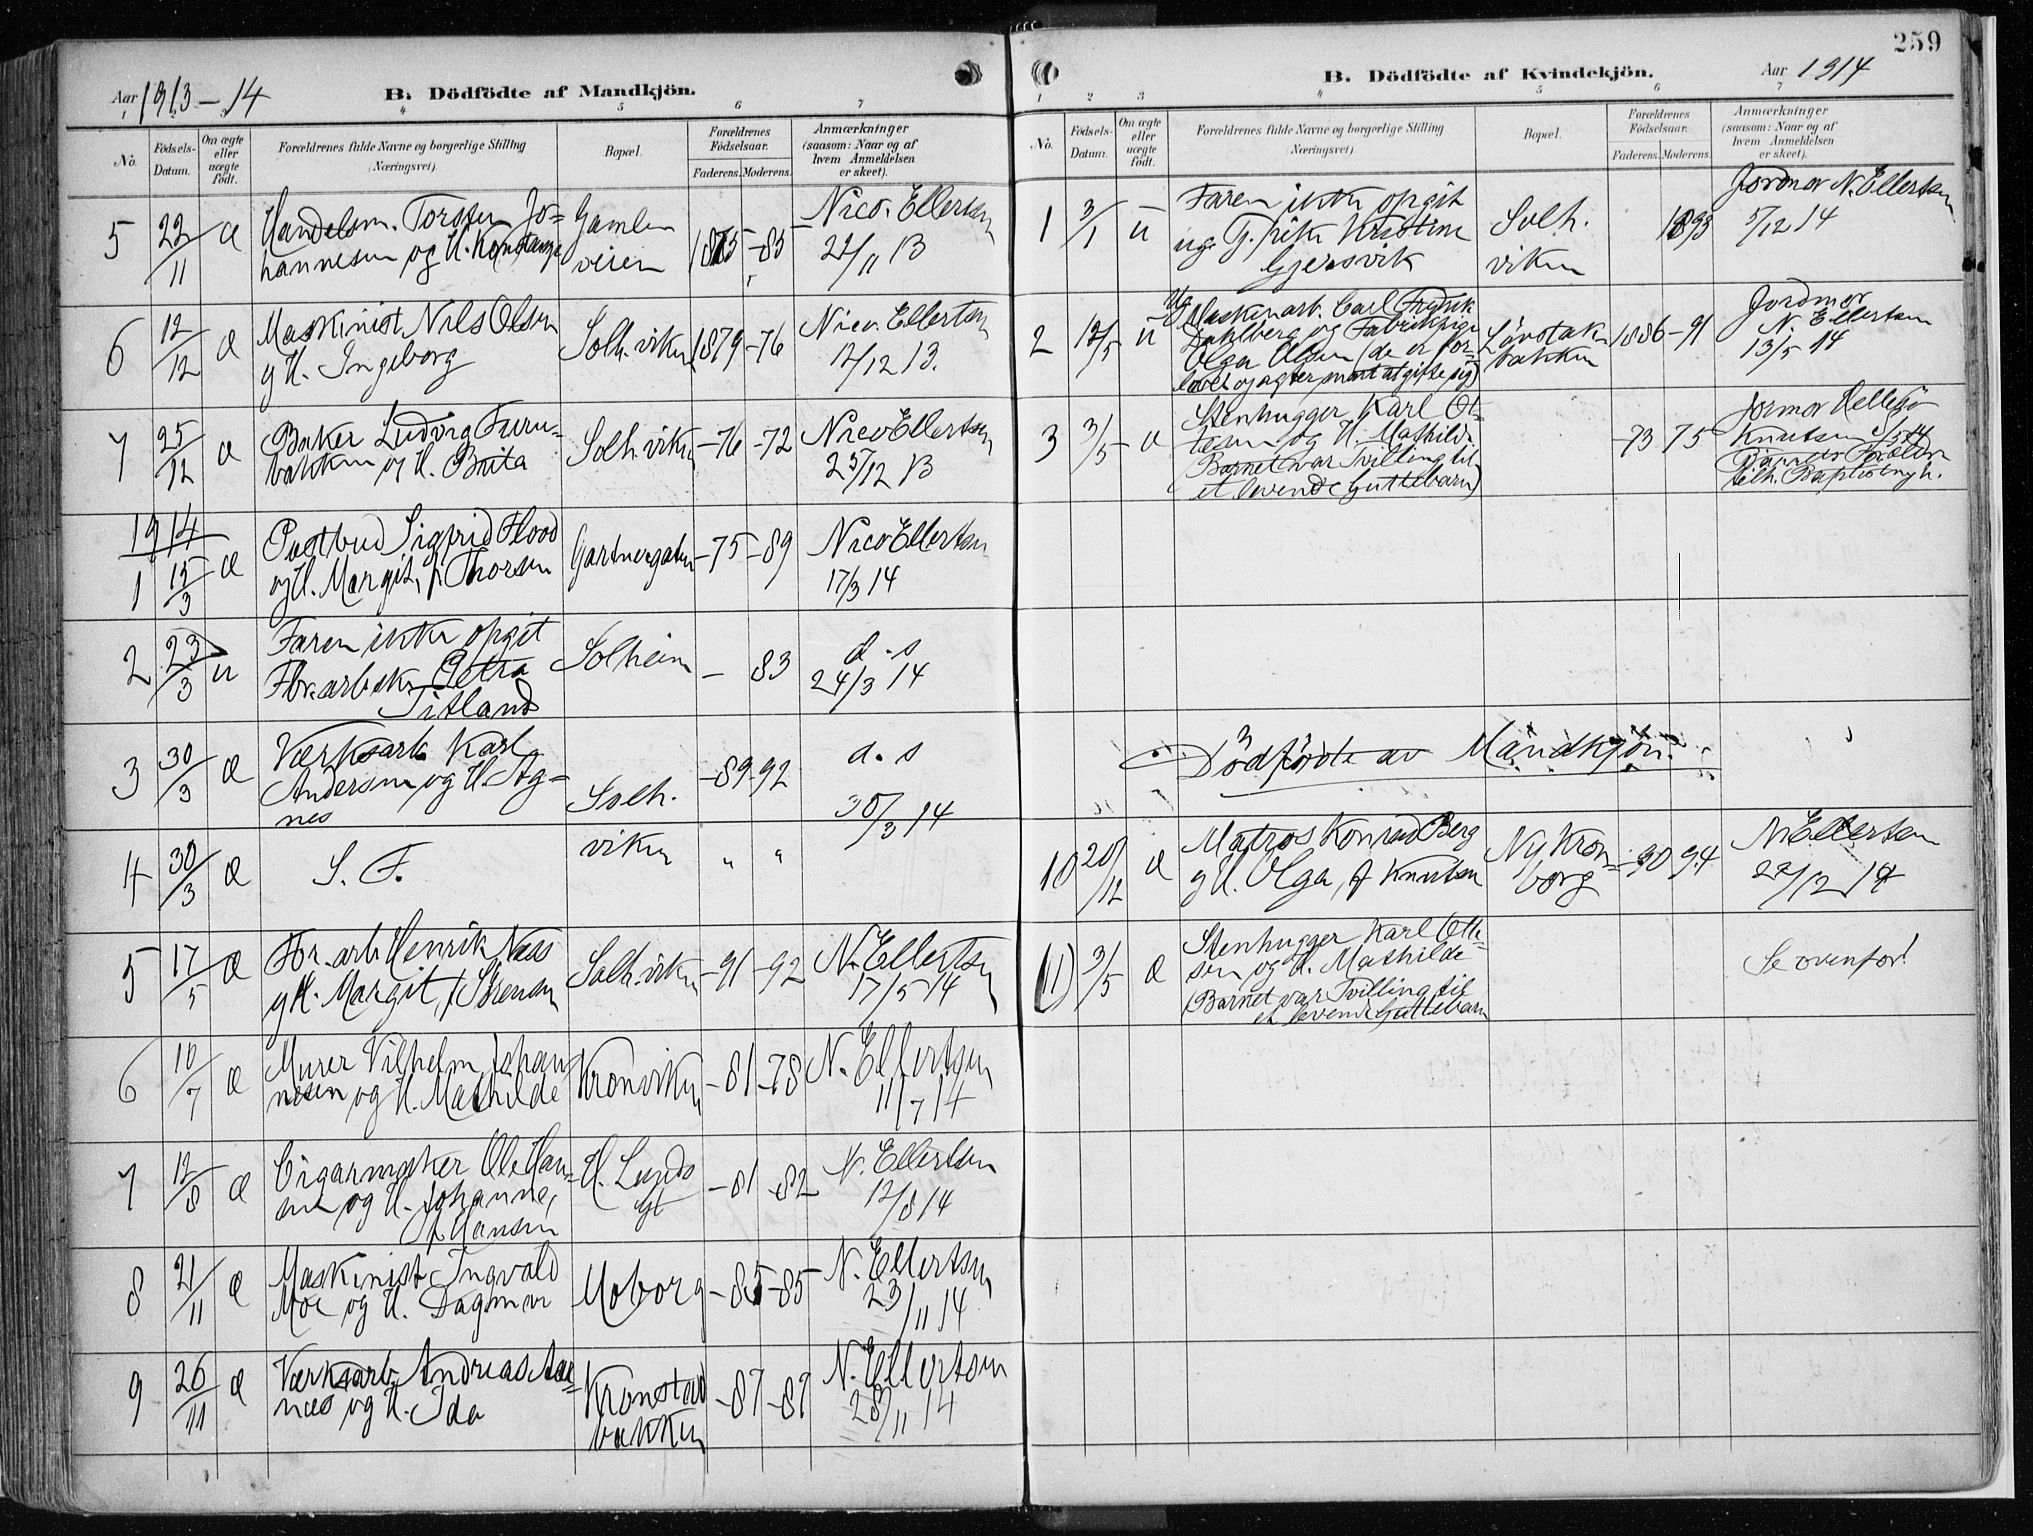 Aar 1913-14
B. Dödfödte af Mandkjön.
4 5 6 7
No.
Födsels-
Datum.
Om ægte
eller
uægte
födt.
Forældrenes fulde Navne og borgerlige Stilling
(Næringsvei).
Bopæl.
Forældrenes
Födselsaar.
Faderens. Moderens.
Anmærkninger
(saasom: Naar og af
hvem Anmeldelsen
er skeet).
5 22/11 Æ
Handelsm. Torsten Jo-
hannesen og H. Konstanse
Gamle
veien
1875 -85
Nico. Ellertsen
22/11 13
6 12/12 Æ
Maskinist Nils Olsen
og H. Ingeborg
Solh.viken
1879 -76
Nico. Ellertsen
12/12 13.
7 25/12 Æ
Baker Ludvig Furu-
bakken og H. Brita
Solh.viken
-76 -72
Nico Ellertsen
25/12 13
1914
1 15/3 Æ
Postbud Sigfrid Flood
og H. Margit, f. Thorsen
Gartnergaten
-75 -89
Nico Ellertsen
17/3 14
2 23/3 u
Faren ikke opgit
For.arbske Petra
Titland
Solheim
- 83
d.s
24/3 14
3 30/3 Æ
Værksarb. Karl
Andersen og H. Ag-
nes
Solh.
viken
-89 -92
d.s
30/3 14
4 30/3 Æ
S. F.
" "
5 17/5 Æ
For.arb. Henrik Næss
og H. Margit, f. Sörensen
Solh.viken
-91 -92
N. Ellertsen
17/5 14
6 10/7 Æ
Murer Vilhelm Johan-
nesen og H. Mathilde
Kronviken
-81 -78
N. Ellertsen
11/7 14
7 12/8 Æ
Cigarmaker Ole Han-
sen og H. Johanne,
f. Hansen
H. Lunds
gt
-81 -82
N. Ellertsen
12/8 14
8 21/11 Æ
Maskinist Ingvald
Moe og H. Dagmar
Moborg
-85 -85
N. Ellertsen
23/11 14
9 26/11 Æ
Værksarb. Andreas Aar-
nes og H. Ida
Kronstad
bakken
-87 -87
N. Ellertsen
28/11 14
259
B. Dödfödte af Kvindekjön.
Aar 1914
1 2 3 4 5 6 7
No.
Födsels-
Datum.
Om ægte
eller
uægte
födt.
Forældrenes fulde Navne og borgerlige Stilling
(Næringsvei).
Bopæl.
Forældrenes
Födselsaar.
Faderens. Moderens.
Anmærkninger
(saasom: Naar og af
hvem Anmeldelsen
er skeet).
1 3/1 u
Faren ikke opgit
ug. Kristine
Gjersvik
Solh.
viken
1893
Jordmor N. Ellertsen
5/12 14
2 12/5 u
Ug Maskinarb. Carl Fredrik
Dahlberg og Fabrikpige
Olga Olsen (de er for-
lovet og agter snart at gifte sig)
Lövstak-
bakken
1886 -91
Jordmor
N. Ellertsen
13/5 14
3 3/5 Æ
Stenhugger Karl Ot-
tesen og H. Mathilde
(Barnet var Tvilling til
et levende Guttebarn)
-73 75
Jormor Hellesö
Knutsen 5/5 14
Barnets Forældre
tilh. Baptistmgh.
Dödfödte av Mandkjön.
10 20/12 Æ
Matros Konrad Berg
og H. Olga, f Knutsen
Ny Kron-
borg
-90 94
N. Ellertsen
22/12 14
(11) 3/5 Æ
Stenhugger Karl Otte-
sen og H. Mathilde
(Barnet var Tvilling til
et levende Guttebarn
Se ovenfor!